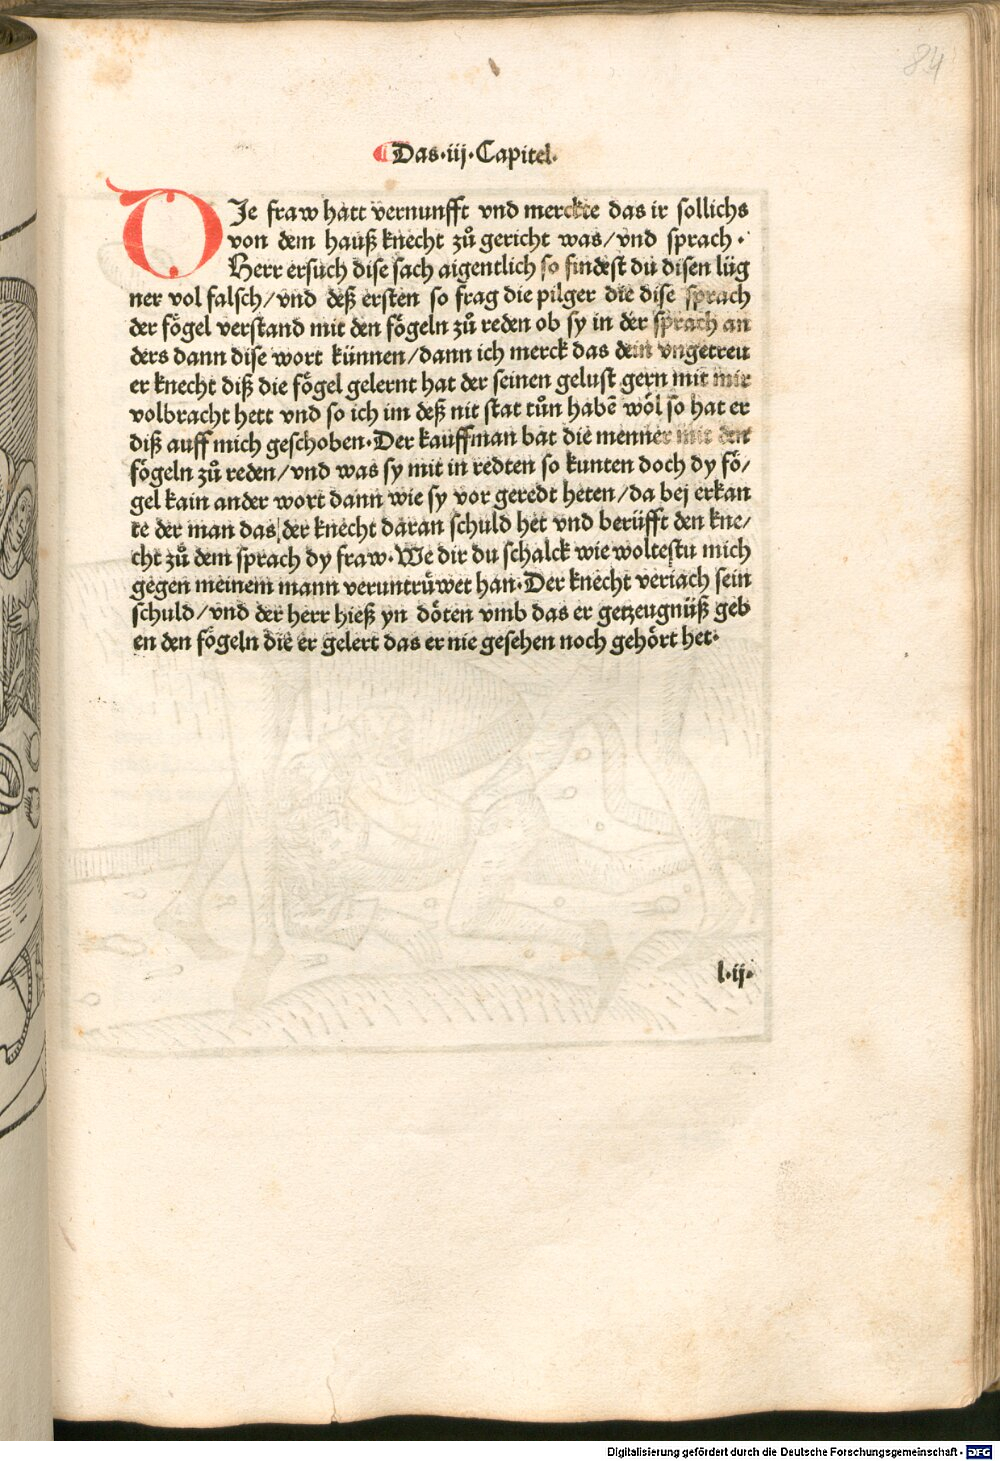 84
Das·iij·Capitel·
DJe fraw hatt vernunfft vnd merckte das ir sollichs
von dem hauß knecht zů gericht was/vnd sprach·
Herr ersuch dise sach aigentlich so findest du disen lüg
ner vol falsch/vnd deß ersten so frag die pilger die dise sprach
der fögel verstand mit den fögeln zů reden ob sy in der sprach an
ders dann dise wort künnen/dann ich merck das dein vngetreu
er knecht diß die fögel gelernt hat der seinen gelust gern mit mir
volbracht hett vnd so ich im deß nit stat tůn habē wöl so hat er
diß auff mich geschoben·Der kauffman bat die menner mit den
fögeln zů reden/vnd was sy mit in redten so kunten doch dy fö/
gel kain ander wort dann wie sy vor geredt heten/da bej erkan
te der man das der knecht daran schuld het vnd berüfft den kne/
cht zů dem sprach dy fraw·We dir du schalck wie woltestu mich
gegen meinem mann veruntrüwet han·Der knecht veriach sein
schuld/vnd der herr hieß yn döten vmb das er getzeugnüß geb
en den fögeln die er gelert das er nie gesehen noch gehört het·
l·ij·
Digitalisierung gefördert durch die Deutsche Forschungsgemeinschaft - DFG